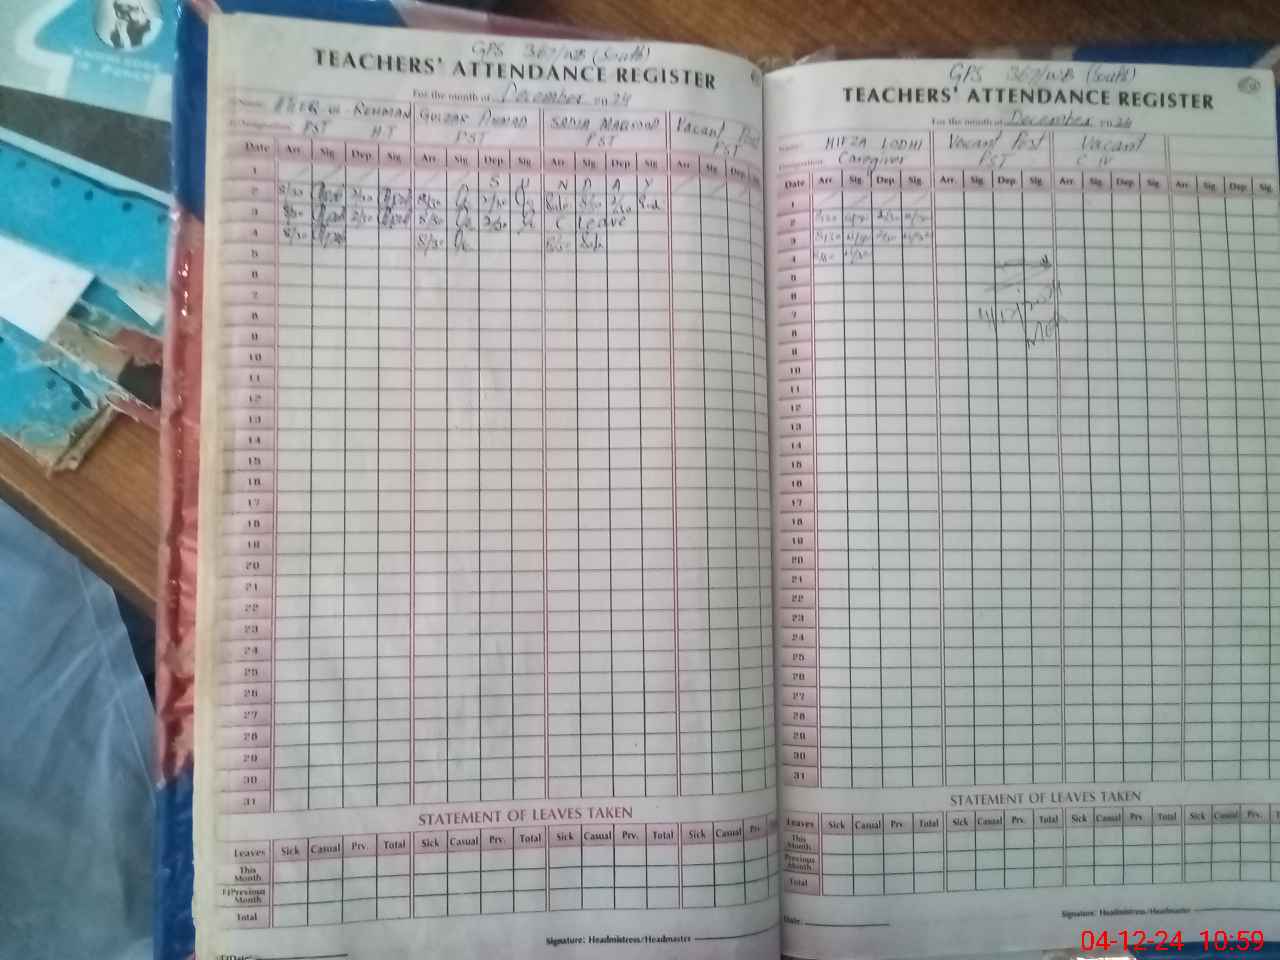 KNOWLEDGE
IS POWER
GPS 367/WB (South)
TEACHERS' ATTENDANCE REGISTER
For the month of December 20 24
Name: -UR-REHMAN GULZAR AHMAD SADIA Vacant Post
Designation PST HT PST PST PST
Date Arr. Sig Dep. Sig Arr. Sig. Dep. Sig Arr. Sig. Dep. Sig. Arr. Sig. Dep. Sig
1 S U N D A Y
2 8/30 2/30 8/30 2/30 8/30 2/30
3 8/30 2/30 8/30 2/30 C Leave
4 8/30 8/30 8/30
5
6
7
8
9
10
11
12
13
14
15
16
17
18
19
20
21
22
23
24
25
26
27
28
29
30
31
STATEMENT OF LEAVES TAKEN
Leaves Sick Casual Prv. Total Sick Casual Prv. Total Sick Casual Prv. Total Sick Casual Prv.
This Month
Previous Month
Total
Signature: Headmistress/Headmaster
Date:
GPS 367/WB (South)
TEACHERS' ATTENDANCE REGISTER
For the month of December 20 24
Name: HIFZA LODHI Vacant Post Vacant
Designation Caregiver PST C IV
Date Arr. Sig. Dep. Sig. Arr. Sig. Dep. Sig. Arr. Sig. Dep. Sig. Arr. Sig. Dep. Sig
1
2 8/30 2/30
3 8/30 2/30
4 8/30
5
6
7
8
9
10
11
12
13
14
15
16
17
18
19
20
21
22
23
24
25
26
27
28
29
30
31
STATEMENT OF LEAVES TAKEN
Leaves Sick Casual Prv. Total Sick Casual Prv. Total Sick Casual Prv. Total Sick Casual Prv.
This Month
Previous Month
Total
Date:
Signature: Headmistress/Headmaster
04-12-24 10:59